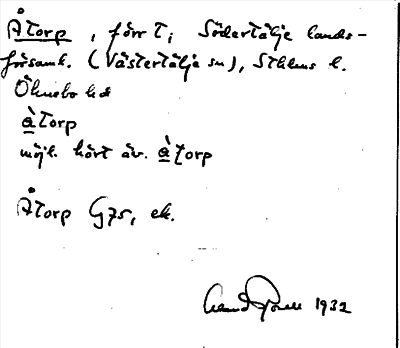 Åtorp, förr t; Södertälje lands-
församl. (Västertälje sn), Sthlms l.
Öknebo hd
ȧ̀torp
möjl. hört äv. ȧ̀torp
Åtorp G75, ek.
1932